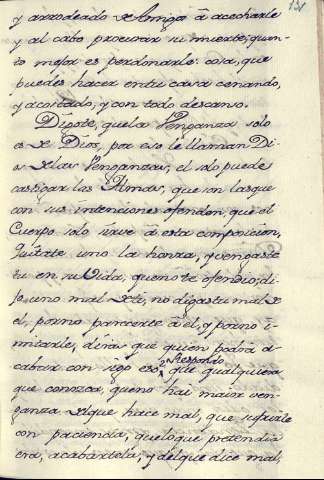 131
y arrodeado de Amigo â acecharle
y al cabo procurar su muerte; quan-
to mejor es perdonarle cosa, que
puedes hacer en tu casa cenando,
y acostado, y con todo descanso.
Digote, que la Venganza solo
es de Dios, por eso le llaman Di-
s de las Venganzas, el solo puede
castigar las Almas, que son las que
con sus intenciones ofenden, que el
Cuerpo solo sirve â esta composicion,
Quitate uno la honra, y vengaste
tu en su Vida, que no te ofendio; di-
jo uno mal de ti, no digas tu mal de
el, por no parecerte â el, y por no i-
mitarle, diras que quien podra a-
cabar con sigo eso? Respondo
que qualquiera
que conozca, que no hai maior ven-
ganza del que hace mal, que sufrirle
con paciencia, que lo que pretendia
era, acabartela, y del que dice mal,